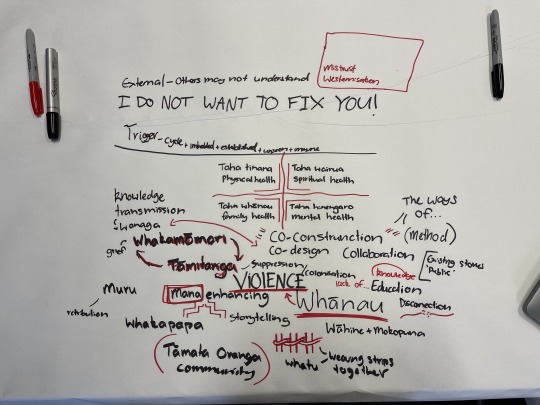 mistrust
Westernisation
External - Others may not understand
I DO NOT WANT TO FIX YOU!
Trigger - cycle + imbedded + established +
Taha tinana
Physical health
Taha wairua
spiritual health
Taha whānau
family health
Taha hinengaro
mental health
knowledge
transmission
Wānaga
The ways
of...
(method)
grief
Whakamōmori
Tāmitanga
CO-Construction
Co-design
Collaboration
Existing stories
'Public'
Suppression
VIOLENCE
Colonisation
knowledge
lack of...
Education
Muru
retribution
Mana enhancing
Whānau
Disconnection
Whakapapa
Storytelling
Wāhine + Mokopuna
Tāmata Oranga
community
whatu
Weaving strips
together